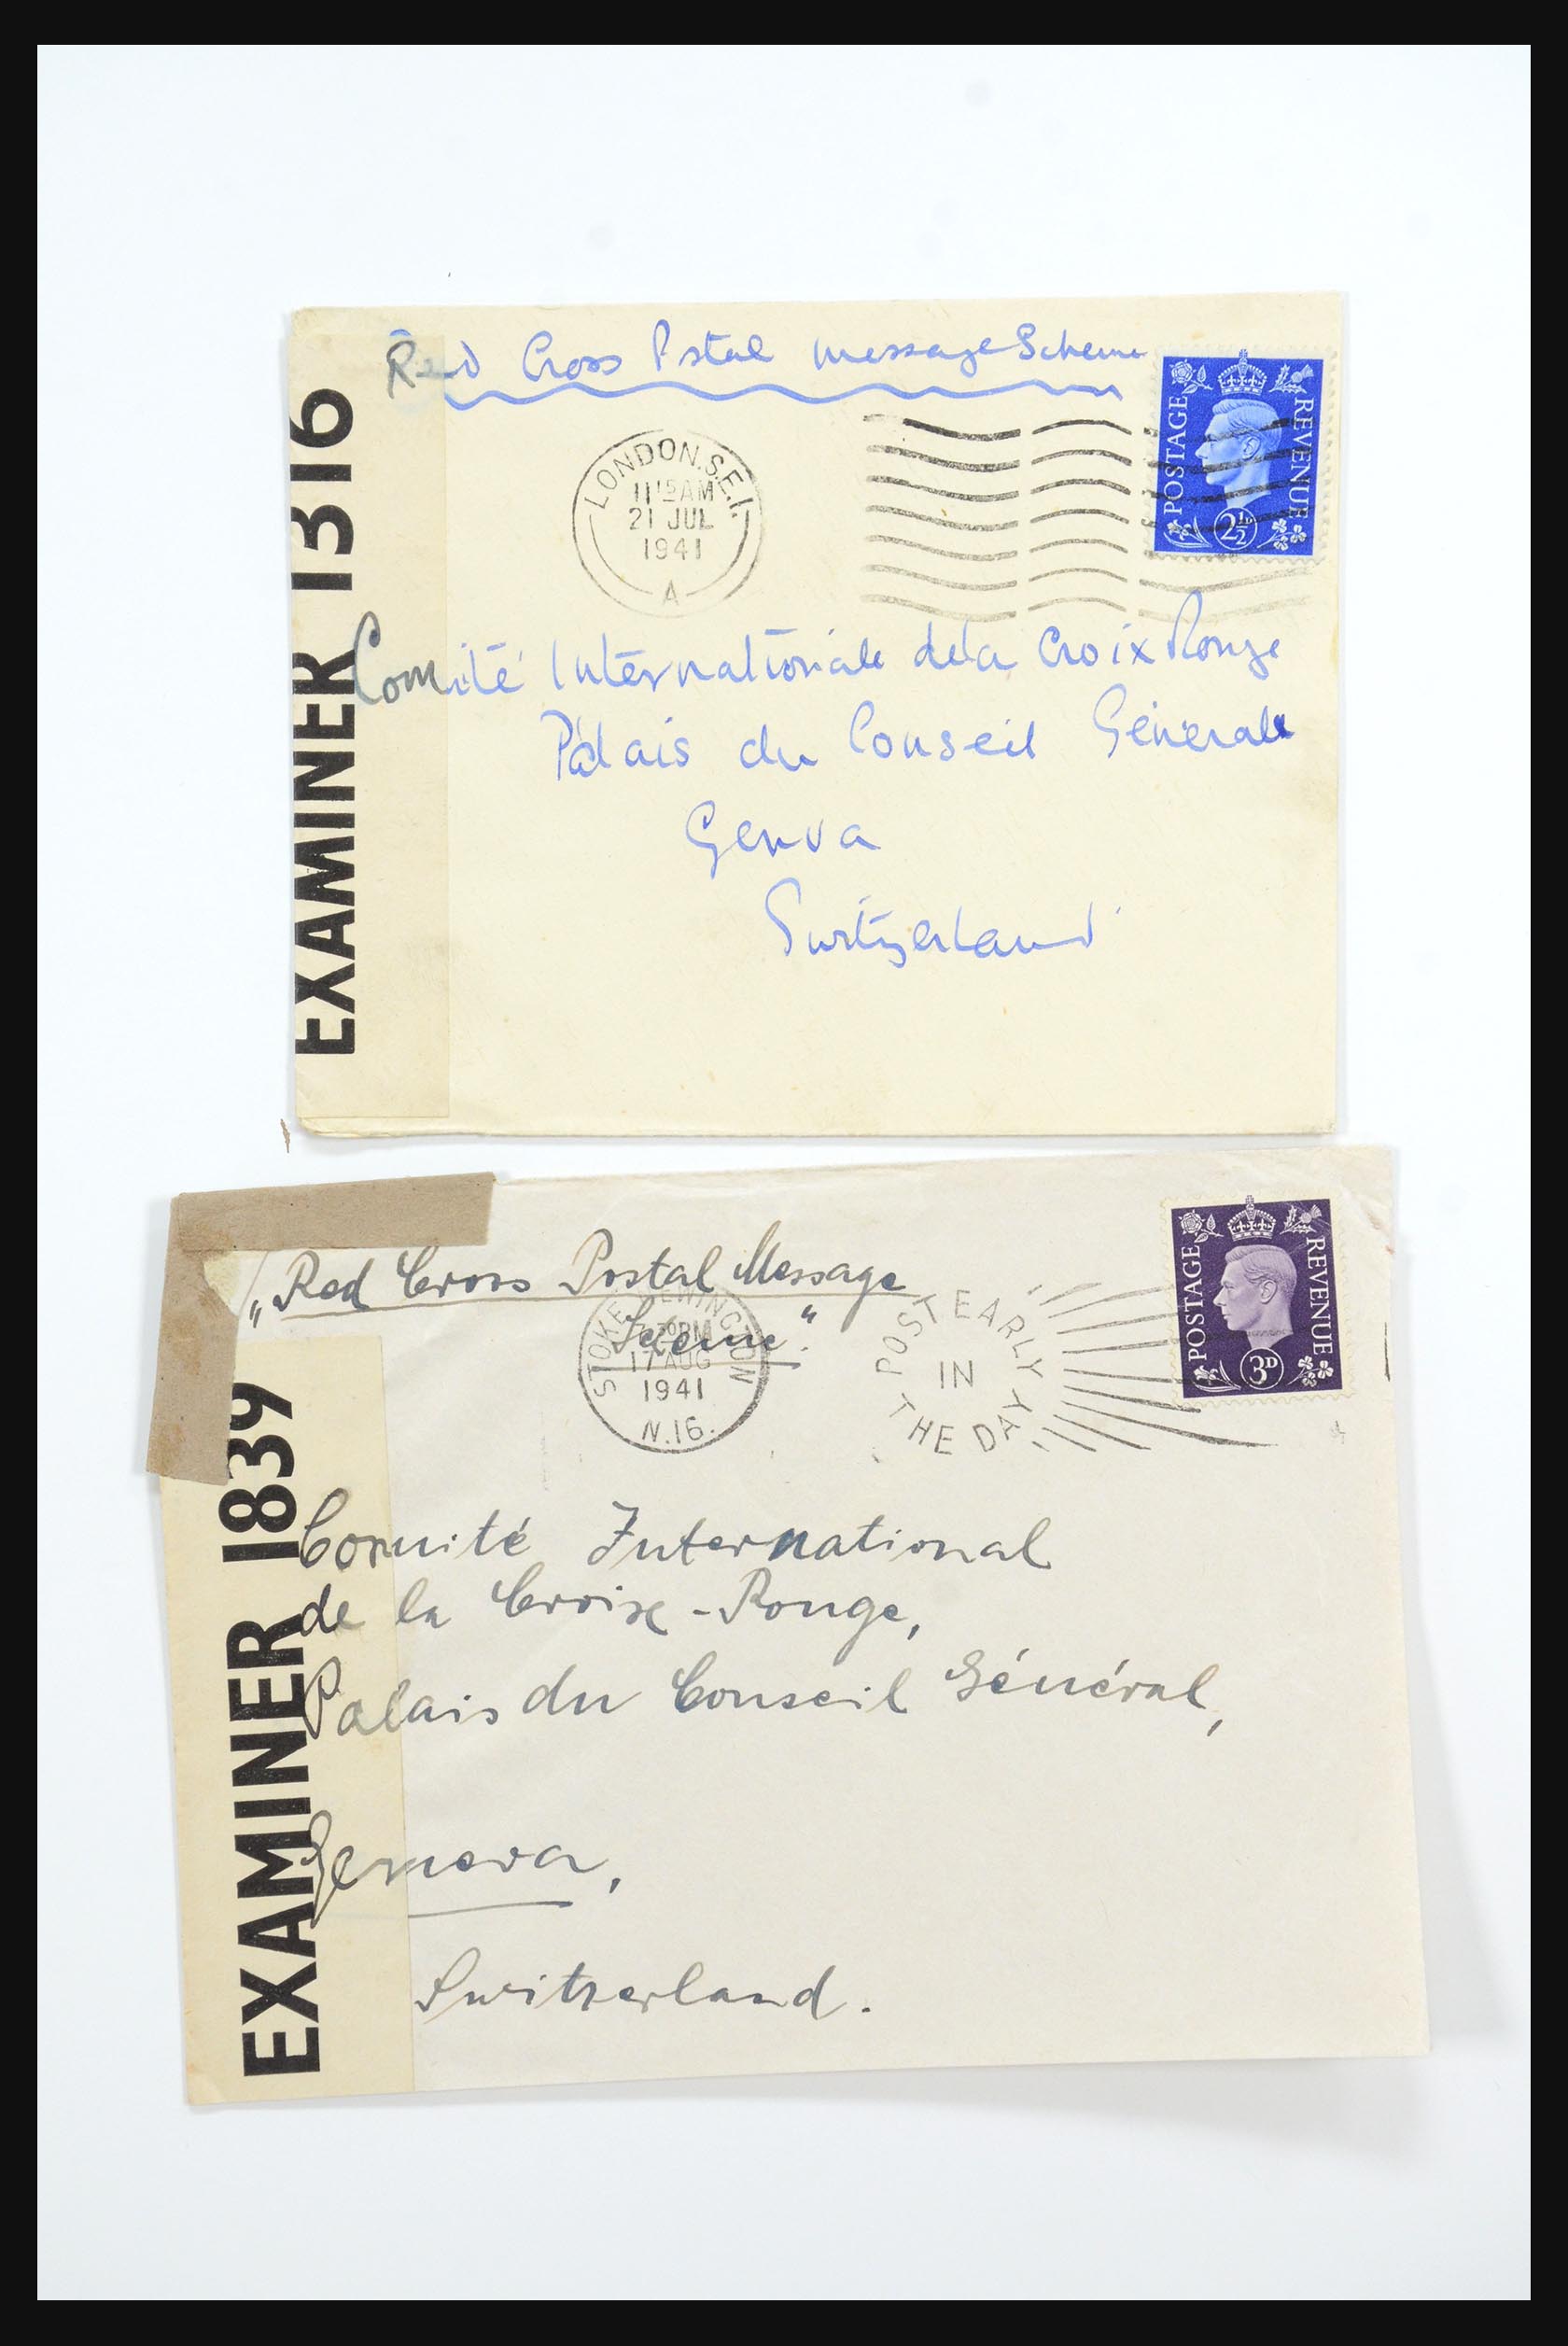 Red Cross Postal message Scheme
POSTAGE
REVENUE
2½D
LONDON.S.E.1.
11 15 AM
21 JUL
1941
A
EXAMINER 1316
Comité Internationale de la Croix Rouge
Palais du Conseil Générale
Genva
Switzerland
"Red Cross Postal Message
Sceme."
POSTAGE
REVENUE
3D
STOKE NEWINGTON
7 30 PM
17 AUG
1941
N.16.
POST EARLY
IN
THE DAY
EXAMINER 1839
Comité International
de la Croix-Rouge,
Palais du Conseil Général,
Geneva,
Switzerland.